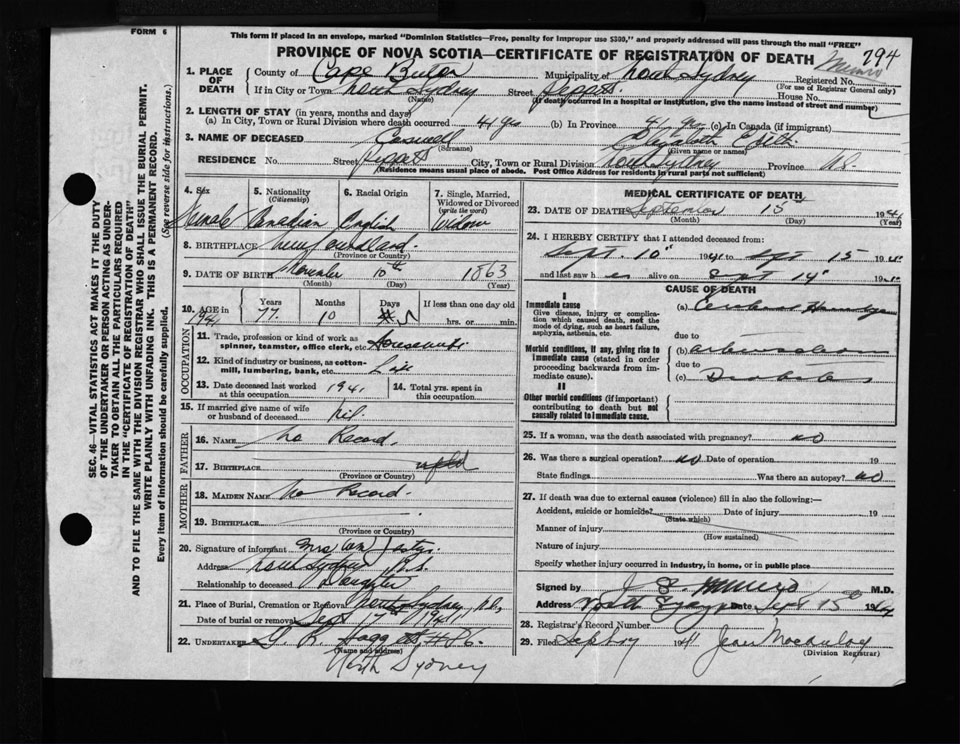 FORM 6
This form if placed in an envelope, marked "Dominion Statistics—Free, penalty for improper use $300," and properly addressed will pass through the mail "FREE"
PROVINCE OF NOVA SCOTIA—CERTIFICATE OF REGISTRATION OF DEATH
794
Munro
1. PLACE OF DEATH
County of Cape Breton
Municipality of North Sydney
Registered No.
(For use of Registrar General only)
If in City or Town North Sydney Street Peppett House No.
(Name)
(If death occurred in a hospital or institution, give the name instead of street and number)
2. LENGTH OF STAY (in years, months and days)
(a) In City, Town or Rural Division where death occurred 41 yrs (b) In Province 41 yrs (c) In Canada (if immigrant)
3. NAME OF DECEASED Elizabeth
(Surname) (Given name or names)
RESIDENCE No. Street Peppett City, Town or Rural Division North Sydney Province N.S.
(Residence means usual place of abode. Post Office Address for residents in rural parts not sufficient)
4. Sex Female
5. Nationality (Citizenship) Canadian
6. Racial Origin English
7. Single, Married, Widowed or Divorced (write the word) Widow
8. BIRTHPLACE Newfoundland
(Province or Country)
9. DATE OF BIRTH November 10th 1863
(Month) (Day) (Year)
10. AGE in 1941
Years 77
Months 10
Days 5
If less than one day old
hrs. or min.
OCCUPATION
11. Trade, profession or kind of work as spinner, teamster, office clerk, etc. Housewife
12. Kind of industry or business, as cotton-mill, lumbering, bank, etc. Life
13. Date deceased last worked at this occupation 1941
14. Total yrs. spent in this occupation
15. If married give name of wife or husband of deceased Nil
FATHER
16. NAME No Record.
17. BIRTHPLACE nfld
(Province or Country)
MOTHER
18. MAIDEN NAME No Record.
19. BIRTHPLACE
(Province or Country)
20. Signature of informant Mrs Wm
Address North Sydney N.S.
Relationship to deceased Daughter
21. Place of Burial, Cremation or Removal North Sydney, N.S.
Date of burial or removal Sept 17th 1941
22. UNDERTAKER G. R. Haggett #86.
(Name and address)
North Sydney
MEDICAL CERTIFICATE OF DEATH
23. DATE OF DEATH September 15th 1941
(Month) (Day) (Year)
24. I HEREBY CERTIFY that I attended deceased from:
Sept. 10" 1941 to Sept 15 1941
and last saw her alive on Sept 14" 1941
CAUSE OF DEATH
I
Immediate cause
Give disease, injury or complication which caused death, not the mode of dying, such as heart failure, asphyxia, asthenia, etc.
(a) Cerebral Hemorrhage
due to
Morbid conditions, if any, giving rise to immediate cause (stated in order proceeding backwards from immediate cause).
(b)
due to
(c) Diabetes
II
Other morbid conditions (if important) contributing to death but not causally related to immediate cause.
25. If a woman, was the death associated with pregnancy? no
26. Was there a surgical operation? no Date of operation 19
State findings Was there an autopsy? no
27. If death was due to external causes (violence) fill in also the following:—
Accident, suicide or homicide? Date of injury 19
(State which)
Manner of injury
(How sustained)
Nature of injury
Specify whether injury occurred in industry, in home, or in public place
Signed by Munro M.D.
Address North Sydney Date Sept 15th 1941
28. Registrar's Record Number
29. Filed Sept 17 1941 Jean
(Division Registrar)
SEC. 46—VITAL STATISTICS ACT MAKES IT THE DUTY
OF THE UNDERTAKER OR PERSON ACTING AS UNDER-
TAKER TO OBTAIN ALL THE PARTICULARS REQUIRED
IN THE "CERTIFICATE OF REGISTRATION OF DEATH"
AND TO FILE THE SAME WITH THE DIVISION REGISTRAR WHO SHALL ISSUE THE BURIAL PERMIT.
WRITE PLAINLY WITH UNFADING INK. THIS IS A PERMANENT RECORD.
Every item of information should be carefully supplied. (See reverse side for instructions.)